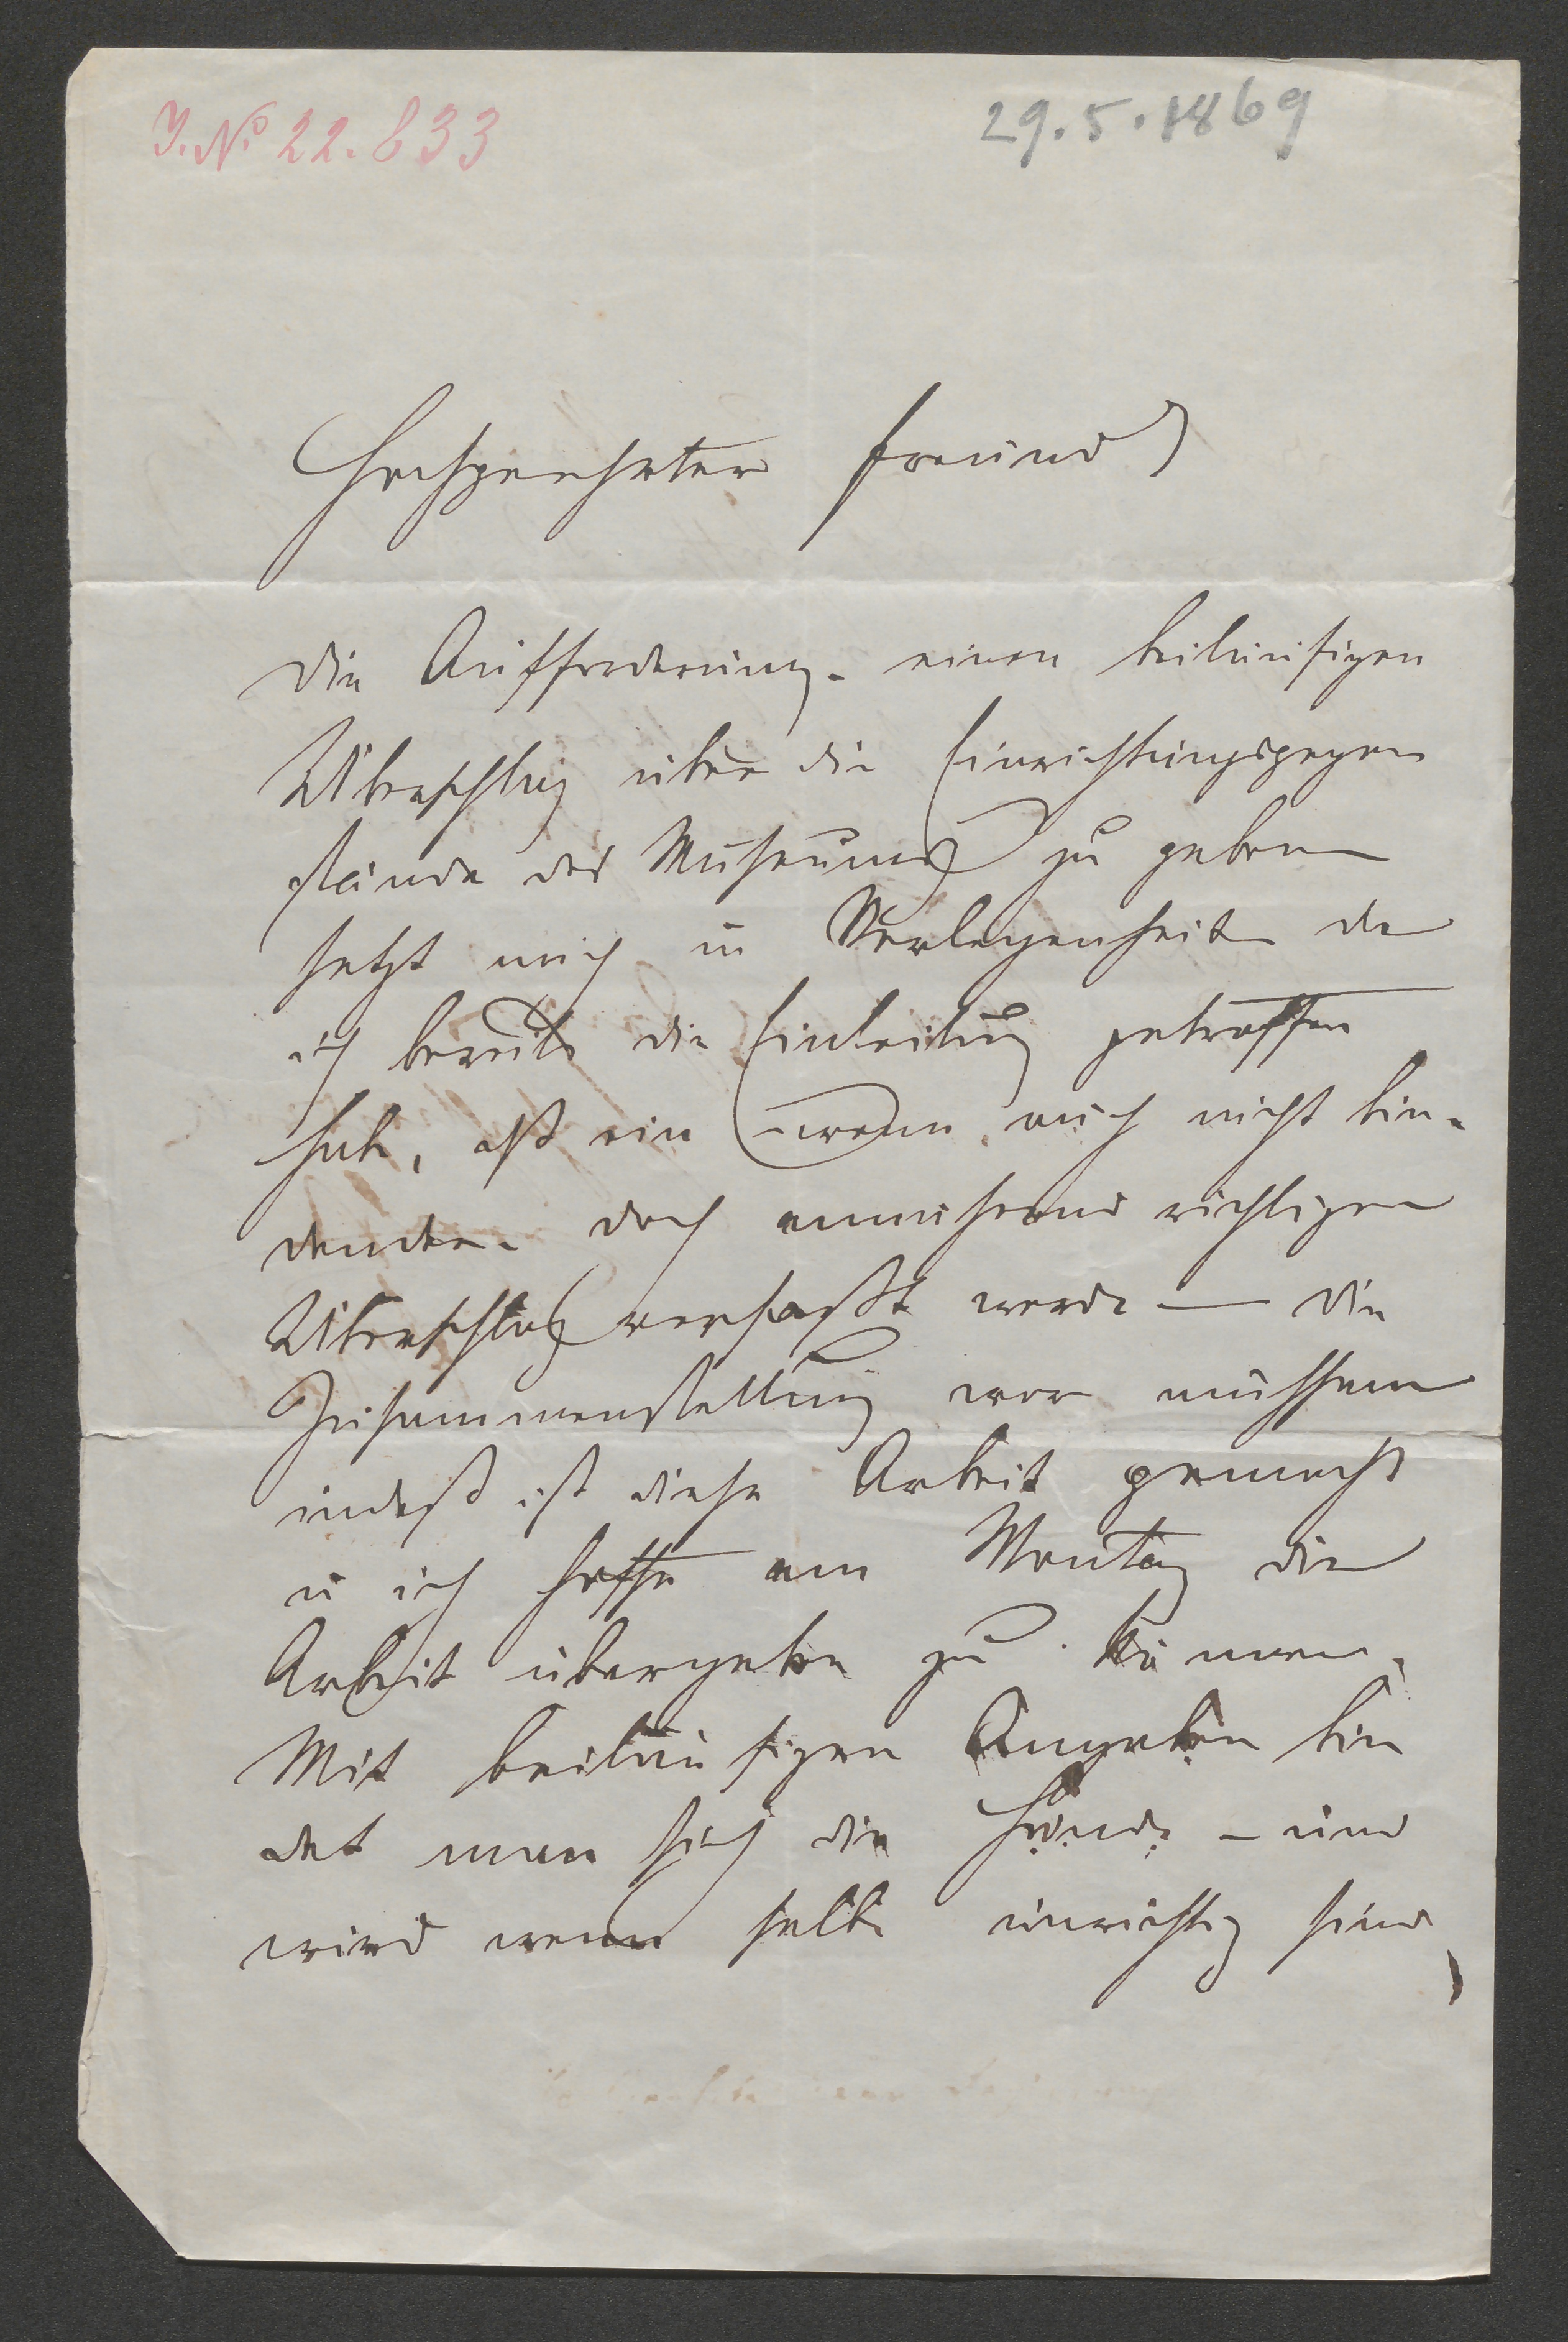 J. No 22.833
29.5.1869
Hochgeehrter Freund
Die Aufforderung - einen beiläufigen
Überschlag über die Einrichtungsgegen
stände des Museums zu geben
setzt mich in Verlegenheit da
ich bereits die Einleitung getroffen
habe, daß ein - wenn auch nicht bin-
dender - doch annähernd richtigen
Überschlag verfaßt werde — die
Zusammenstellung war mühsam
indeß ist diese Arbeit gemacht
u ich hoffe am Montag die
Arbeit übergeben zu können.
Mit beiläufigen Angaben bin
det man sich die Hände - und
wird wenn selbe unrichtig sind,